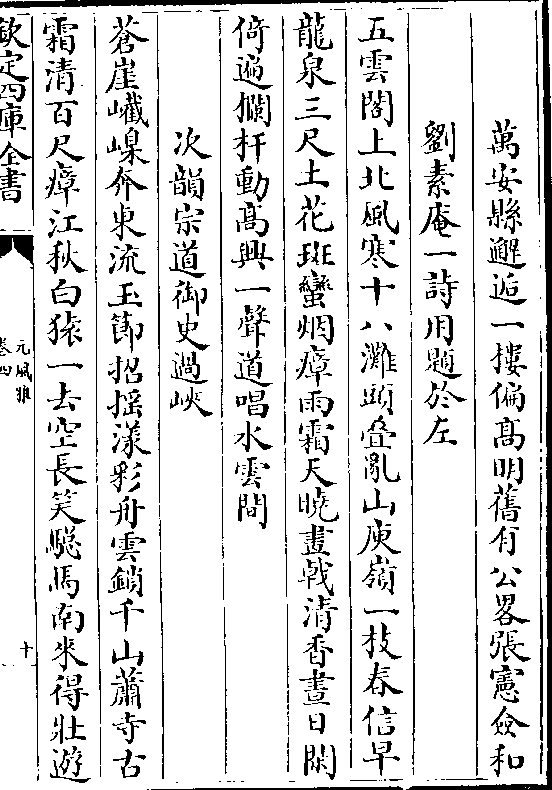 萬安縣邂逅一摟偏髙明舊有公畧張憲僉和
劉素庵一詩用題於左
五雲閣上北風寒十八灘頭叠亂山庾嶺一枝春信早
龍泉三尺土花斑蠻烟瘴雨霜天曉畫㦸清香晝日閑
倚遍欄杆動髙興一聲道唱水雲間
次韻宗道御史過峽
蒼崖巀嵲奔東流玉節招揺漾彩舟雲鎖千山蕭寺古
霜清百尺瘴江秋白猿一去空長笑驄馬南來得壯遊
欽定四庫全書
元風雅
卷四
十